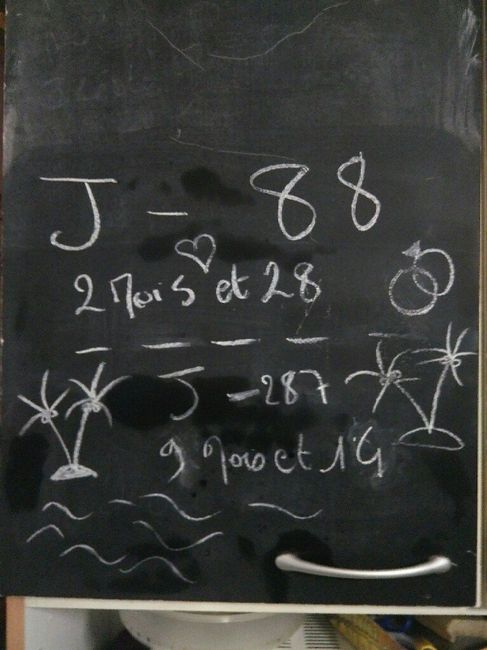 J - 88
2 Mois et 28
J - 287
9 Mois et 14